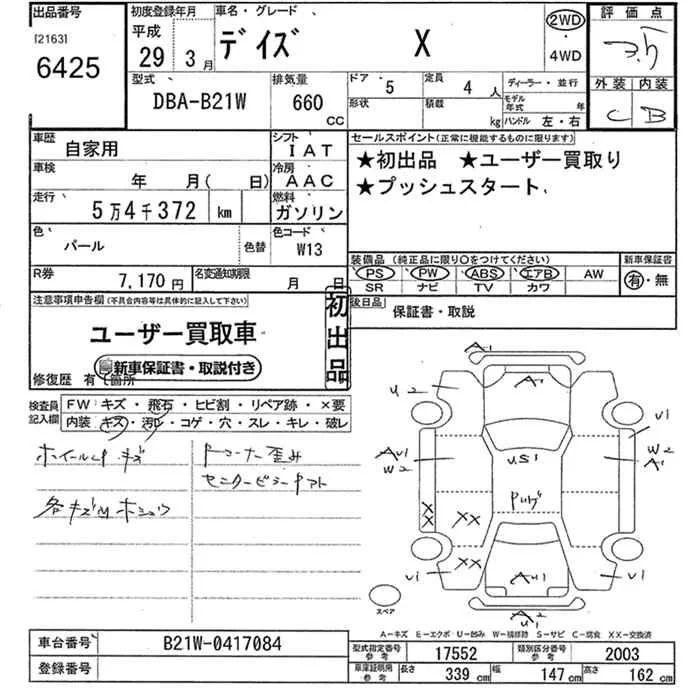 出品番号 初度登録年月 車名・グレード 2WD 評価点
[2163] 平成 デイズ X
6425 29 3月 4WD 外装 内装
型式 排気量 ドア 5 定員 4人 ディーラー・並行 C B
DBA-B21W 660 CC 形状 積載 kg モデル年式 年 ハンドル 左・右
車歴 自家用 シフト IAT セールスポイント(正常に機能するものに限ります)
車検 年 月( 日) 冷房 AAC ★初出品 ★ユーザー買取り
走行 5万4千372 km 燃料 ガソリン ★プッシュスタート
色 パール 色替 色コード W13
装備品 (純正品に限り○をつけてください) 新車保証書
R券 7,170円 名変通知期限 月 日 PS PW ABS エアB AW 有・無
SR ナビ TV カワ
注意事項申告欄(不具合内容等は具体的に記入して下さい) 初出品 後日品 保証書・取説
ユーザー買取車
新車保証書・取説付き
修復歴 有 箇所
検査員記入欄 FW キズ・飛石・ヒビ割・リペア跡・×要
内装 キズ・汚レ・コゲ・穴・スレ・キレ・破レ
ホイールCP キズ
A1
A1
U2
U1
AU1 W2
US1
W2 A1
XX XX
XX
U1
AU1
U1
スペア
A2
U1
A-キズ E-エクボ U-凹み W-補修跡 S-サビ C-腐食 XX-交換済
車台番号 B21W-0417084 型式指定番号 参考 17552 類別区分番号 参考 2003
登録番号 車庫証明用 参考 長さ 339 cm 幅 147 cm 高さ 162 cm